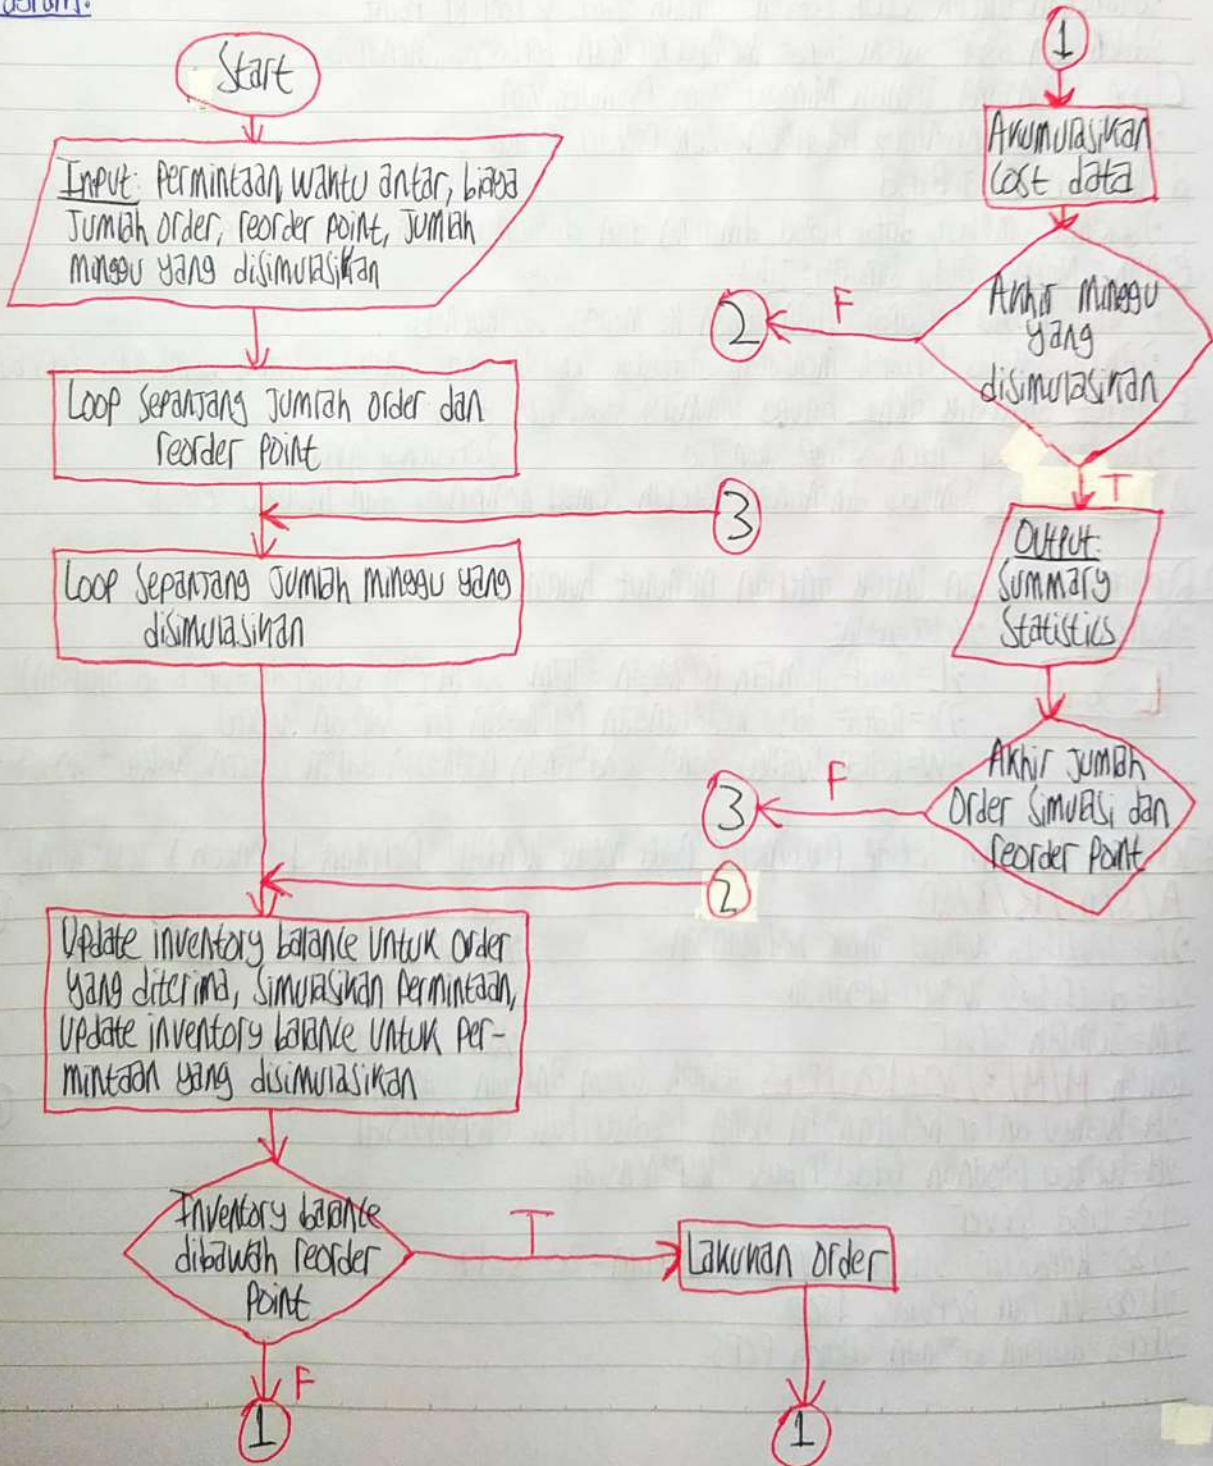 Start
Input: Permintaan, waktu antar, biaya
Jumlah order, reorder point, Jumlah
minggu yang disimulasikan
Loop sepanjang Jumlah order dan
reorder point
3
Loop sepanjang Jumlah minggu yang
disimulasikan
2
Update inventory balance untuk order
yang diterima, simulasikan permintaan,
Update inventory balance untuk per-
mintaan yang disimulasikan
Inventory balance
dibawah reorder
point
T
Lakukan order
F
1
1
1
Akumulasikan
Cost data
Akhir minggu
yang
disimulasikan
F
2
T
Output:
Summary
Statistics
Akhir Jumlah
Order simulasi dan
reorder point
F
3